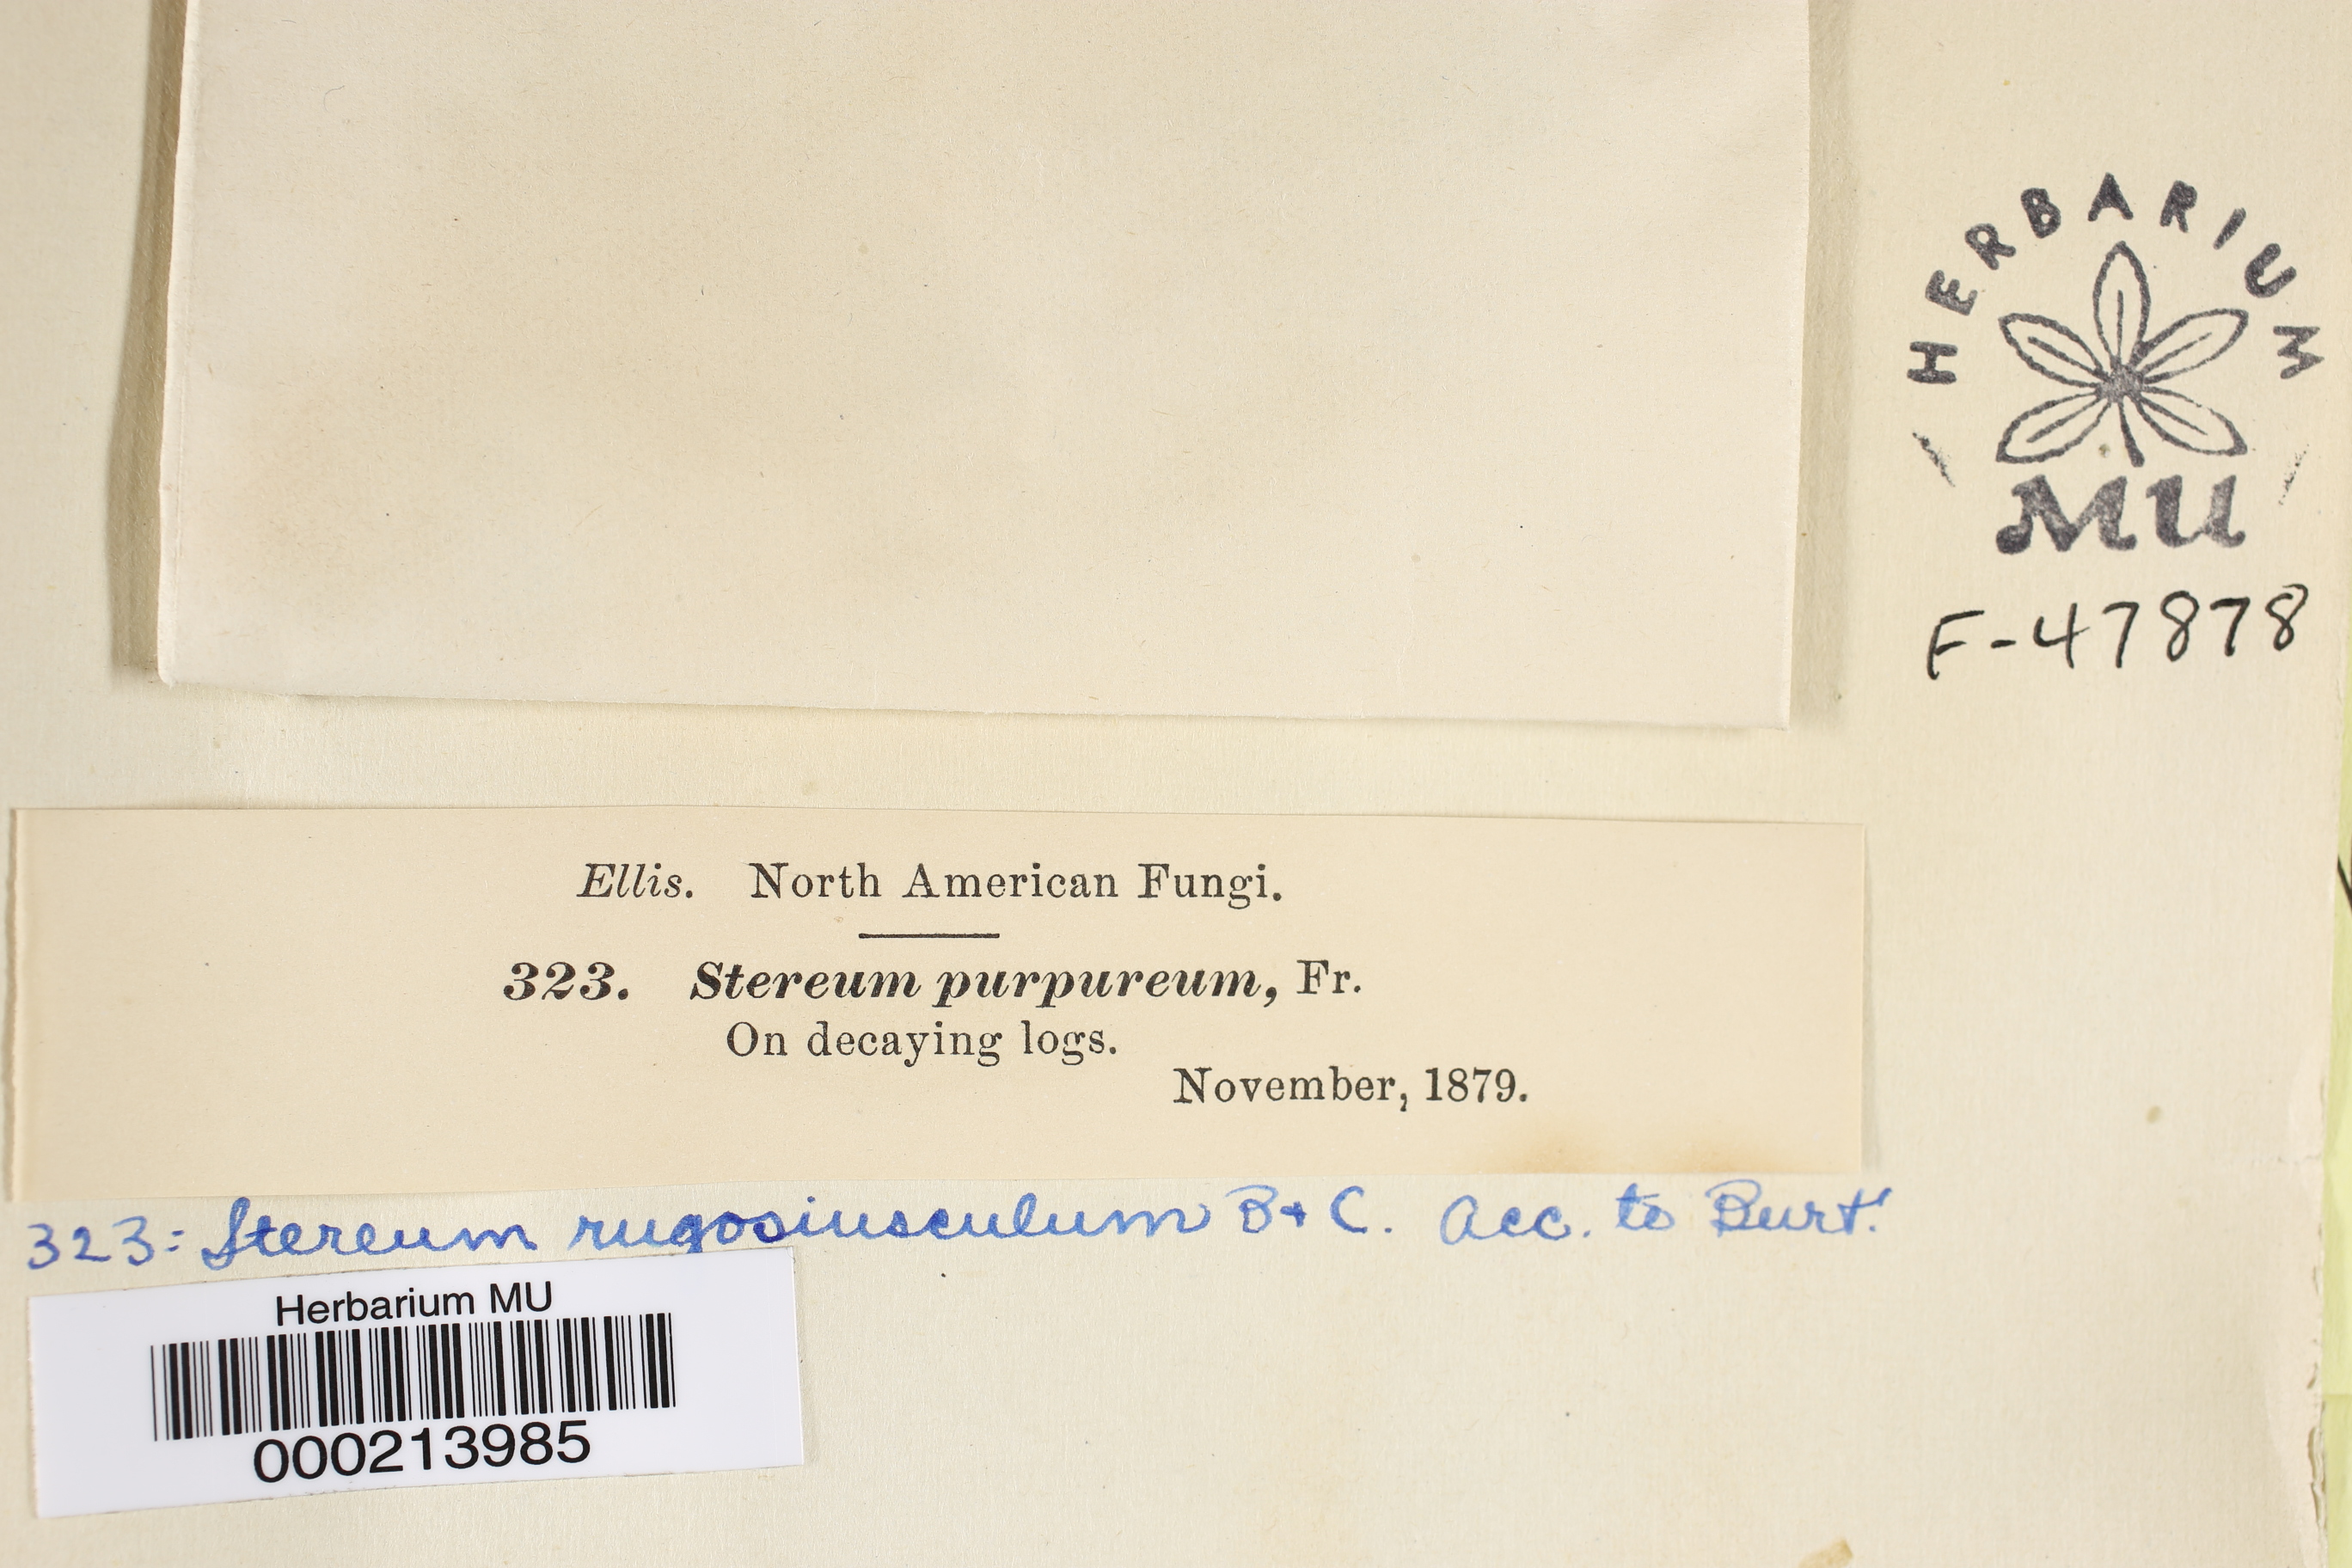 HERBARIUM
MU
F-47878
Ellis. North American Fungi.
323. Stereum purpureum, Fr.
On decaying logs.
November, 1879.
323: Stereum rugosiusculum B+C. Acc. to Burt!
Herbarium MU
000213985